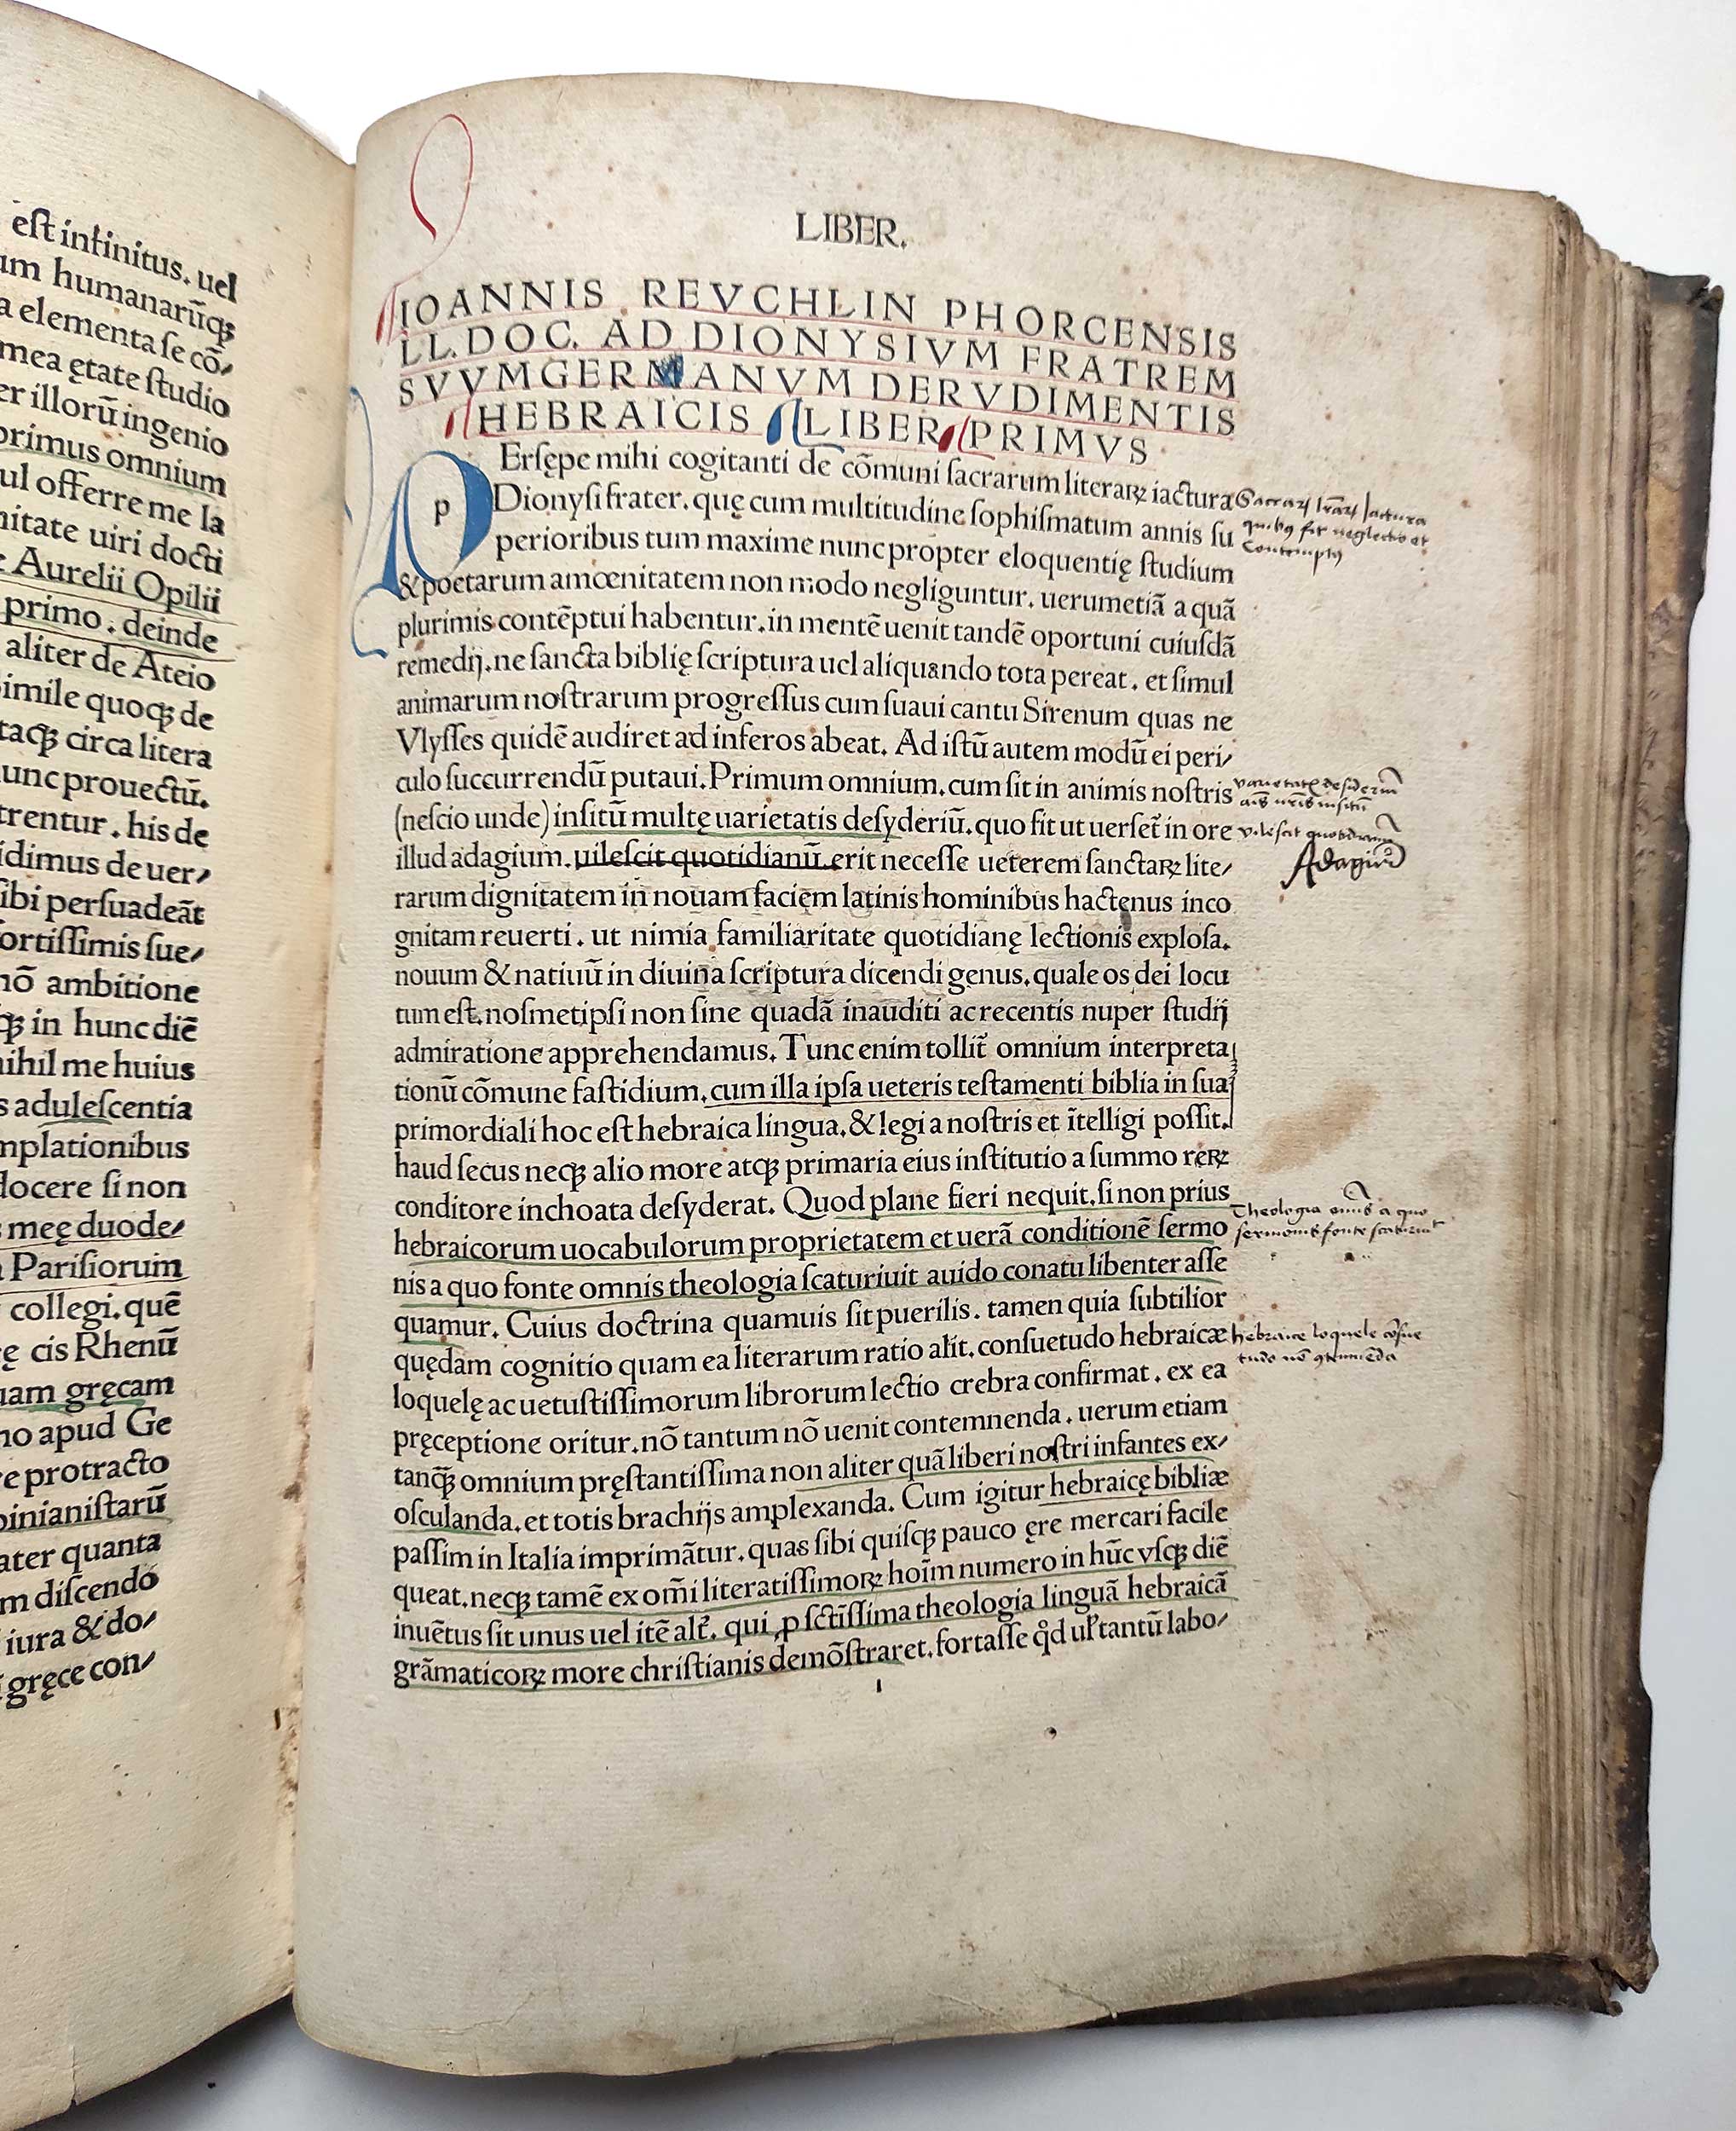 est infinitus. uel
um humanarūqꝫ
a elementa se cō⸗
mea ętate studio
er illorū ingenio
primus omnium
ul offerre me la
nitate uiri docti
Aurelii Opilii
primo. deinde
aliter de Ateio
simile quoqꝫ de
taqꝫ circa litera
unc prouectū.
trentur. his de
idimus de uer⸗
ibi persuadeāt
ortissimis sue⸗
nō ambitione
qꝫ in hunc diē
nihil me huius
s adulescentia
mplationibus
docere si non
meę duode⸗
Parisiorum
collegi. quē
ę cis Rhenū
uam gręcam
no apud Ge
e protracto
binianistarū
ater quanta
m discendo
iura & do⸗
gręce con⸗
LIBER.
IOANNIS REVCHLIN PHORCENSIS
LL. DOC. AD DIONYSIVM FRATREM
SVVMGERMANVM DERVDIMENTIS
HEBRAICIS LIBER PRIMVS
p
Ersępe mihi cogitanti de cōmuni sacrarum literaꝝ iactura
Dionysi frater. quę cum multitudine sophismatum annis su
perioribus tum maxime nunc propter eloquentię studium
& poetarum amœnitatem non modo negliguntur. uerumetiā a quā
plurimis contēptui habentur. in mentē uenit tandē oportuni cuiusdā
remedij. ne sancta biblię scriptura uel aliquando tota pereat. et simul
animarum nostrarum progressus cum suaui cantu Sirenum quas ne
Vlysses quidē audiret ad inferos abeat. Ad istū autem modū ei peri⸗
culo succurrendū putaui. Primum omnium. cum sit in animis nostris
(nescio unde) insitū multę uarietatis desyderiū. quo fit ut uerset̄ in ore
illud adagium. uilescit quotidianū. erit necesse ueterem sanctaꝝ lite⸗
rarum dignitatem in nouam faciem latinis hominibus hactenus inco
gnitam reuerti. ut nimia familiaritate quotidianę lectionis explosa.
nouum & natiuū in diuina scriptura dicendi genus. quale os dei locu
tum est. nosmetipsi non sine quadā inauditi ac recentis nuper studij
admiratione apprehendamus. Tunc enim tollit̄ omnium interpreta
tionū cōmune fastidium. cum illa ipsa ueteris testamenti biblia in sua
primordiali hoc est hebraica lingua. & legi a nostris et ītelligi possit.
haud secus neqꝫ alio more atqꝫ primaria eius institutio a summo reꝝ
conditore inchoata desyderat. Quod plane fieri nequit. si non prius
hebraicorum uocabulorum proprietatem et uerā conditionē sermo
nis a quo fonte omnis theologia scaturiuit auido conatu libenter asse
quamur. Cuius doctrina quamuis sit puerilis. tamen quia subtilior
quędam cognitio quam ea literarum ratio alit. consuetudo hebraicæ
loquelę ac uetustissimorum librorum lectio crebra confirmat. ex ea
pręceptione oritur. nō tantum nō uenit contemnenda. uerum etiam
tanqꝫ omnium pręstantissima non aliter quā liberi nostri infantes ex⸗
osculanda. et totis brachijs amplexanda. Cum igitur hebraicę bibliæ
passim in Italia imprimātur. quas sibi quisqꝫ pauco ęre mercari facile
queat. neqꝫ tamē ex om̄i literatissimoꝝ hoīm numero in hūc vsqꝫ diē
inuētus sit unus uel itē alt̄. qui ꝓ sctīssima theologia linguā hebraicā
grāmaticoꝝ more christianis demōstraret. fortasse qd̓ ul̓ tantū labo⸗
Adagiū
Theologia a quo
sermonis fonte
hebraice loquele cōsue